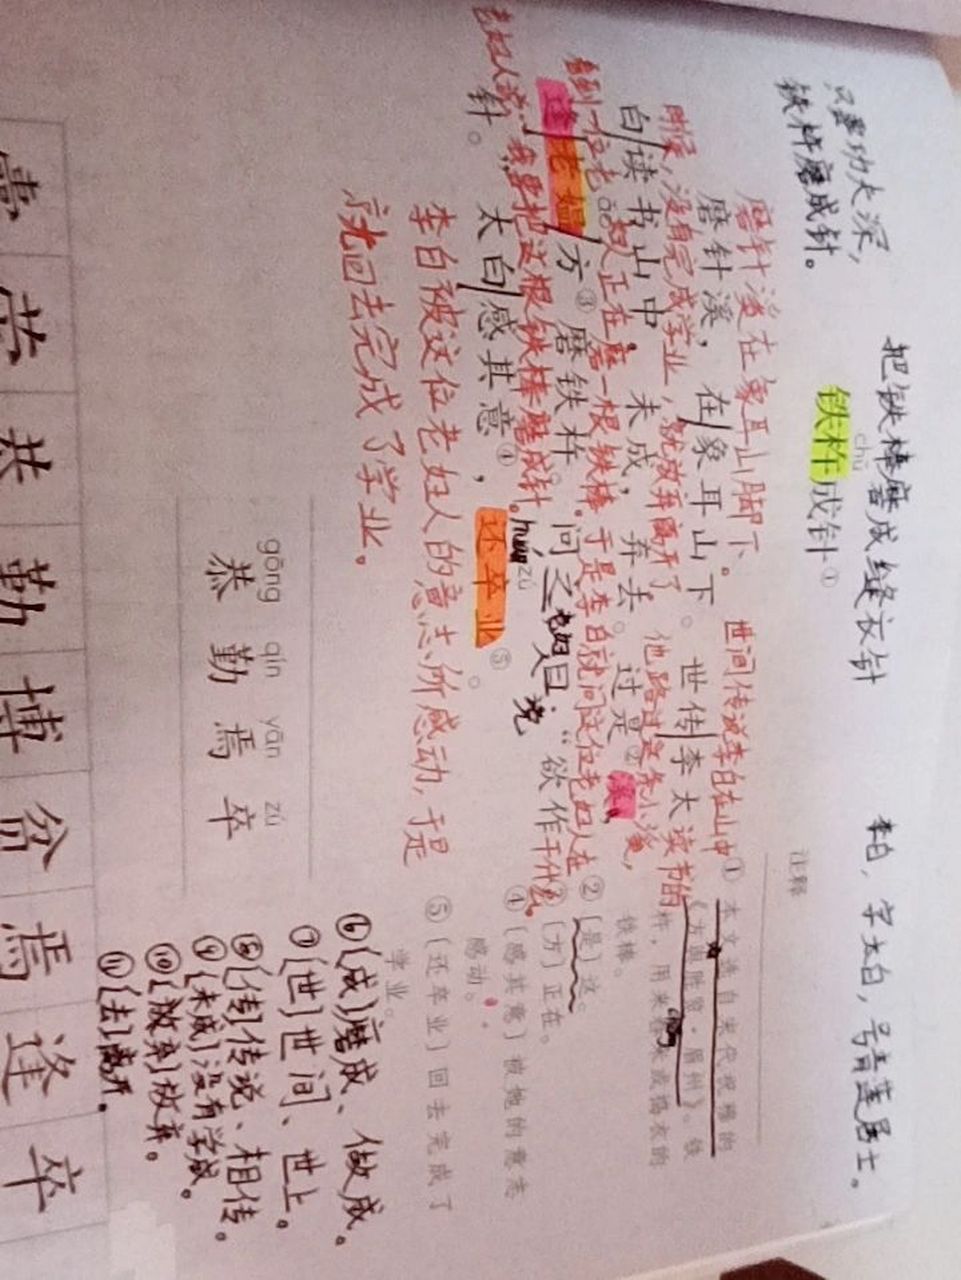 只要功夫深，
铁杵磨成针。
把铁棒磨成缝衣针
李白，字太白，号青莲居士。
chǔ
铁杵成针①
注释
磨针溪在象耳山脚下。世间传说李白在山中
磨针溪，在象耳山下。世传李太
时候，没有完成学业，就放弃离开了
白读书山中，未成，弃去。过是②溪，
他路过这条小溪，
看到一位老妇人正在磨一根铁棒。于是李白就问这位老妇人在
逢老媪方③磨铁杵。问之，
老妇人
曰
说
“欲作
干什么
老妇人说：我要把这根铁棒磨成针。
针。”太白感其意④，还卒业⑤。
huán zú
李白被这位老妇人的意志所感动，于是
就回去完成了学业。
① 本文选自宋代祝穆的
《方舆胜览·眉州》。铁
杵，用来
铁棒。
② 〔是〕这。
③ 〔方〕正在。
④ 〔感其意〕被她的意志
感动。
⑤ 〔还卒业〕回去完成了
学业。
⑥〔成〕磨成、做成。
⑦〔世〕世间、世上。
⑧〔传〕传说、相传。
⑨〔未成〕没有学成。
⑩〔放弃〕放弃。
⑪〔去〕离开。
gōng qín yān zú
恭 勤 焉 卒
囊 萤 恭 勤 博 焉 逢 卒